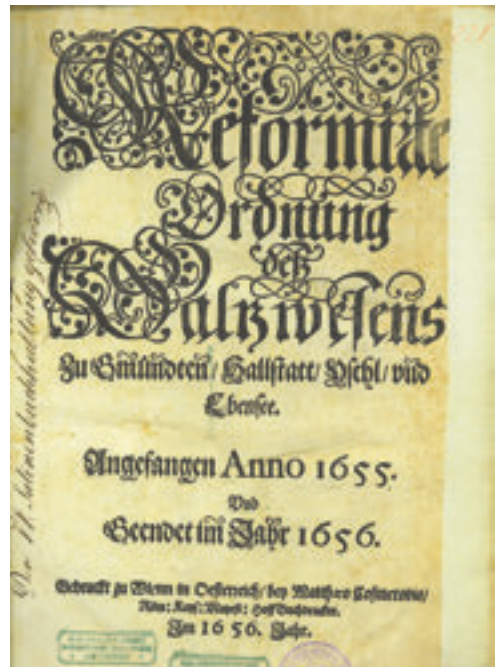 Reformirte
Ordnung
deß
Saltzwesens
Zu Gmündten/ Hallstatt/ Yschl/ und
Ebensee.
Angefangen Anno 1655.
Und
Geendet im Jahr 1656.
Gedruckt zu Wienn in Oesterreich/ bey Matthæo Cosmerovio/
Röm: Kays: Mayest: Hoff Buchdrucker.
Im 1656. Jahr.